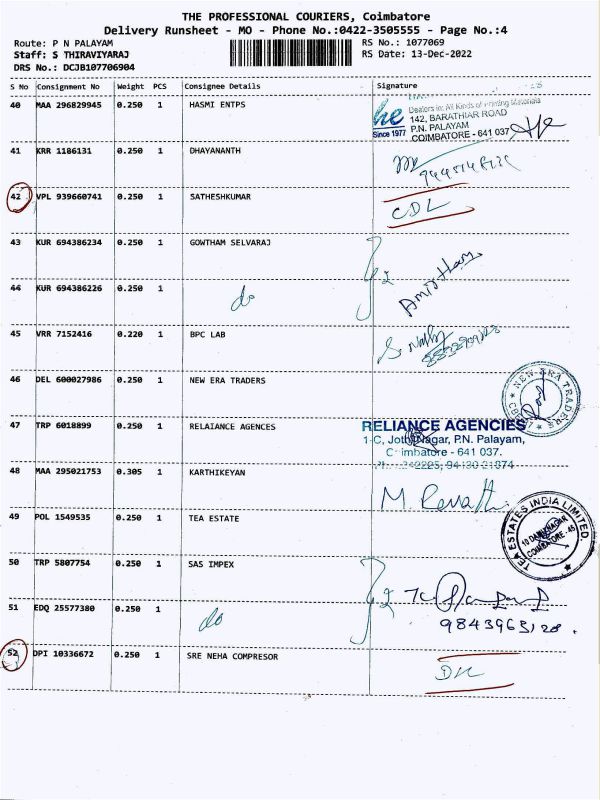 THE PROFESSIONAL COURIERS, Coimbatore
Delivery Runsheet - MO - Phone No.:0422-3505555 - Page No.:4
Route: P N PALAYAM RS No.: 1077069
Staff: S THIRAVIYARAJ RS Date: 13-Dec-2022
DRS No.: DCJB107706904
S No Consignment No Weight PCS Consignee Details Signature
40 MAA 296829945 0.250 1 HASMI ENTPS
he Dealers in: All Kinds of Printing Materials
142, BARATHIAR ROAD
P.N. PALAYAM
Since 1977 COIMBATORE - 641 037
41 KRR 1186131 0.250 1 DHAYANANTH
42 VPL 939660741 0.250 1 SATHESHKUMAR CDL
43 KUR 694386234 0.250 1 GOWTHAM SELVARAJ
44 KUR 694386226 0.250 1 do
45 VRR 7152416 0.220 1 BPC LAB
46 DEL 600027986 0.250 1 NEW ERA TRADERS
NEW ERA TRADERS
47 TRP 6018899 0.250 1 RELAIANCE AGENCIES RELIANCE AGENCIES
1-C, Jothi Nagar, P.N. Palayam,
Coimbatore - 641 037.
48 MAA 295021753 0.305 1 KARTHIKEYAN
M. Revathi
49 POL 1549535 0.250 1 TEA ESTATE
TEA ESTATES INDIA LIMITED.
COIMBATORE - 45
50 TRP 5807754 0.250 1 SAS IMPEX
51 EDQ 25577380 0.250 1 do
9843963128.
52 DPI 10336672 0.250 1 SRE NEHA COMPRESOR